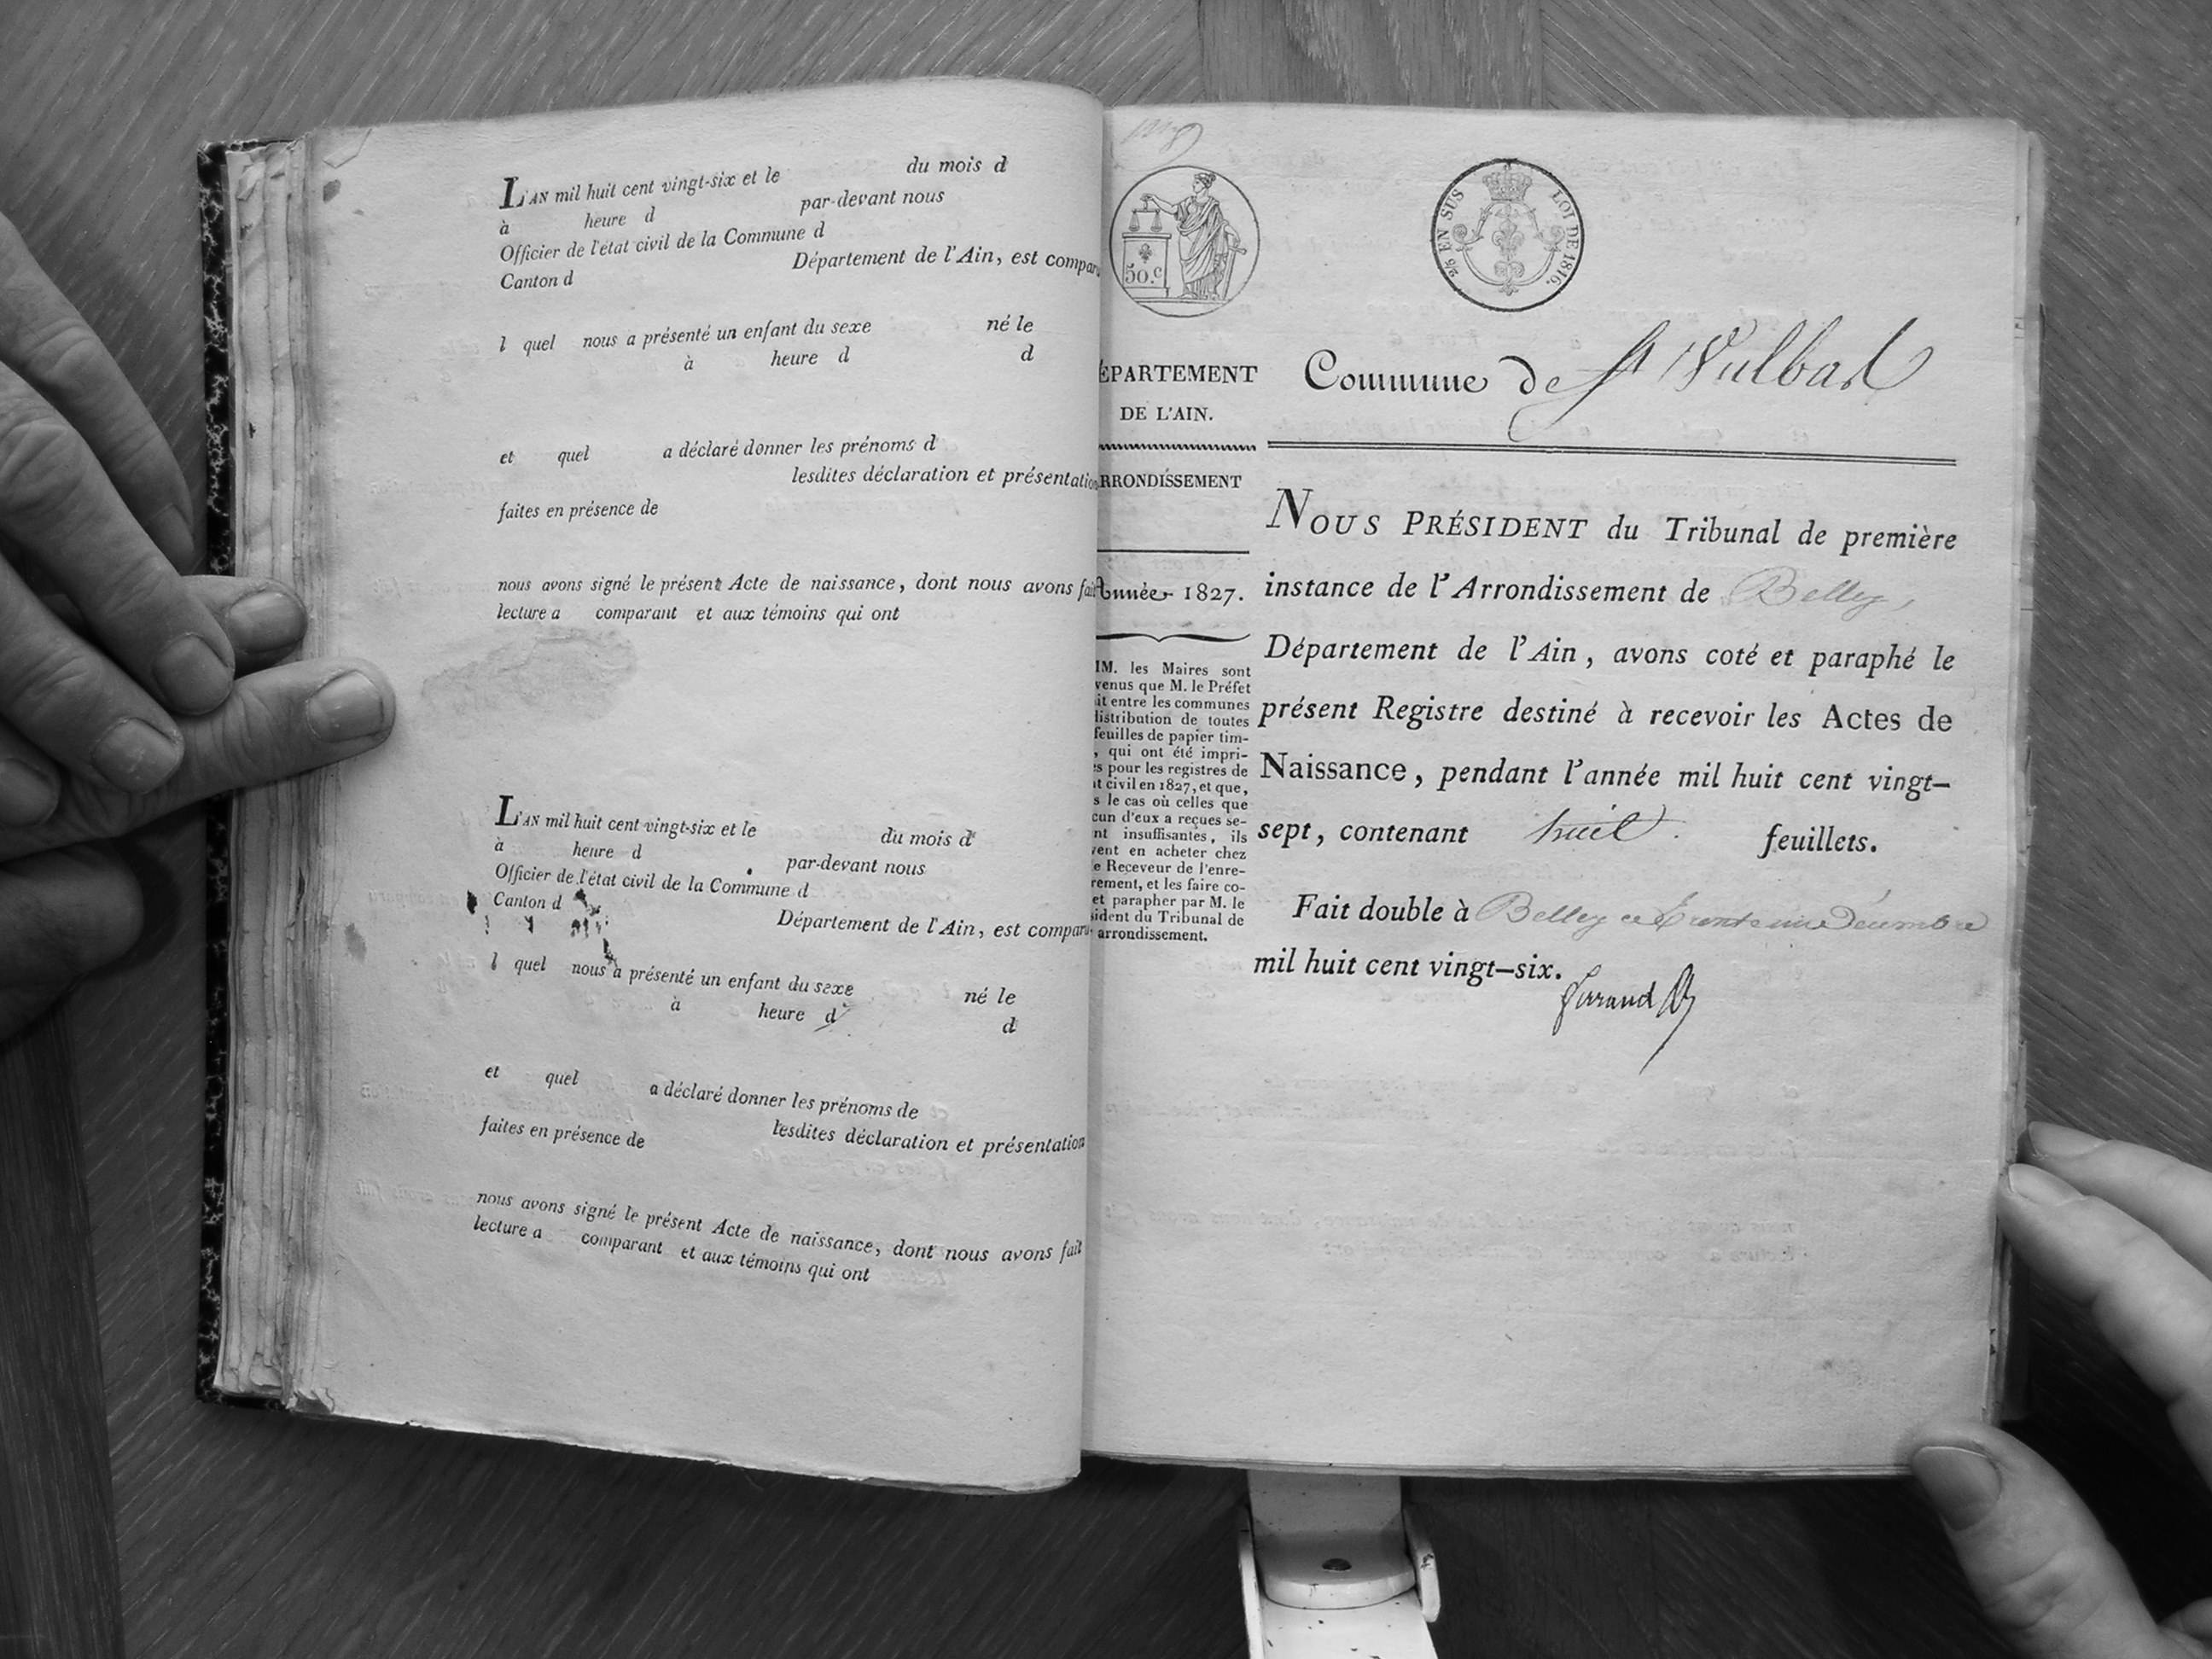 L'AN mil huit cent vingt-six et le du mois d
à heure d par-devant nous
Officier de l'état civil de la Commune d
Canton d Département de l'Ain, est comparu
l quel nous a présenté un enfant du sexe né le
à heure d d
et quel a déclaré donner les prénoms d
lesdites déclaration et présentation
faites en présence de
nous avons signé le présent Acte de naissance, dont nous avons fait
lecture a comparant et aux témoins qui ont
L'AN mil huit cent vingt-six et le du mois d
à heure d par-devant nous
Officier de l'état civil de la Commune d
Canton d
Département de l'Ain, est comparu
l quel nous a présenté un enfant du sexe né le
à heure d d
et quel a déclaré donner les prénoms de
lesdites déclaration et présentation
faites en présence de
nous avons signé le présent Acte de naissance, dont nous avons fait
lecture a comparant et aux témoins qui ont
50.c
2/5 EN SUS LOI DE 1816.
ÉPARTEMENT
DE L'AIN.
RRONDISSEMENT
Année 1827.
IM. les Maires sont
venus que M. le Préfet
it entre les communes
distribution de toutes
feuilles de papier tim-
, qui ont été impri-
es pour les registres de
t civil en 1827, et que,
s le cas où celles que
cun d'eux a reçues se-
nt insuffisantes, ils
vent en acheter chez
e Receveur de l'enre-
rement, et les faire co-
et parapher par M. le
sident du Tribunal de
arrondissement.
Commune de St Vulbas
NOUS PRÉSIDENT du Tribunal de première
instance de l'Arrondissement de Belley,
Département de l'Ain, avons coté et paraphé le
présent Registre destiné à recevoir les Actes de
Naissance, pendant l'année mil huit cent vingt-
sept, contenant huit feuillets.
Fait double à Belley ce trente une Décembre
mil huit cent vingt-six.